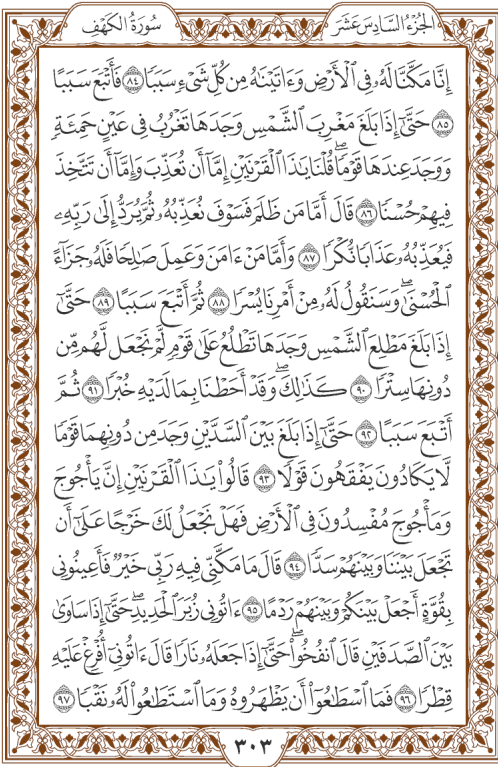 الجُزْءُ السَّادِسَ عَشَرَ
سُورَةُ الكَهْفِ
إِنَّا مَكَّنَّا لَهُۥ فِي ٱلْأَرْضِ وَءَاتَيْنَٰهُ مِن كُلِّ شَىْءٍ سَبَبًا ٨٤ فَأَتْبَعَ سَبَبًا
٨٥ حَتَّىٰٓ إِذَا بَلَغَ مَغْرِبَ ٱلشَّمْسِ وَجَدَهَا تَغْرُبُ فِي عَيْنٍ حَمِئَةٍ
وَوَجَدَ عِندَهَا قَوْمًاۗ قُلْنَا يَٰذَا ٱلْقَرْنَيْنِ إِمَّآ أَن تُعَذِّبَ وَإِمَّآ أَن تَتَّخِذَ
فِيهِمْ حُسْنًا ٨٦ قَالَ أَمَّا مَن ظَلَمَ فَسَوْفَ نُعَذِّبُهُۥ ثُمَّ يُرَدُّ إِلَىٰ رَبِّهِۦ
فَيُعَذِّبُهُۥ عَذَابًا نُّكْرًا ٨٧ وَأَمَّا مَنْ ءَامَنَ وَعَمِلَ صَٰلِحًا فَلَهُۥ جَزَآءً
ٱلْحُسْنَىٰۖ وَسَنَقُولُ لَهُۥ مِنْ أَمْرِنَا يُسْرًا ٨٨ ثُمَّ أَتْبَعَ سَبَبًا ٨٩ حَتَّىٰٓ
إِذَا بَلَغَ مَطْلِعَ ٱلشَّمْسِ وَجَدَهَا تَطْلُعُ عَلَىٰ قَوْمٍ لَّمْ نَجْعَل لَّهُم مِّن
دُونِهَا سِتْرًا ٩٠ كَذَٰلِكَۖ وَقَدْ أَحَطْنَا بِمَا لَدَيْهِ خُبْرًا ٩١ ثُمَّ
أَتْبَعَ سَبَبًا ٩٢ حَتَّىٰٓ إِذَا بَلَغَ بَيْنَ ٱلسَّدَّيْنِ وَجَدَ مِن دُونِهِمَا قَوْمًا
لَّا يَكَادُونَ يَفْقَهُونَ قَوْلًا ٩٣ قَالُوا۟ يَٰذَا ٱلْقَرْنَيْنِ إِنَّ يَأْجُوجَ
وَمَأْجُوجَ مُفْسِدُونَ فِي ٱلْأَرْضِ فَهَلْ نَجْعَلُ لَكَ خَرْجًا عَلَىٰٓ أَن
تَجْعَلَ بَيْنَنَا وَبَيْنَهُمْ سَدًّا ٩٤ قَالَ مَا مَكَّنِّي فِيهِ رَبِّي خَيْرٌ فَأَعِينُونِي
بِقُوَّةٍ أَجْعَلْ بَيْنَكُمْ وَبَيْنَهُمْ رَدْمًا ٩٥ ءَاتُونِي زُبَرَ ٱلْحَدِيدِۖ حَتَّىٰٓ إِذَا سَاوَىٰ
بَيْنَ ٱلصَّدَفَيْنِ قَالَ ٱنفُخُوا۟ۖ حَتَّىٰٓ إِذَا جَعَلَهُۥ نَارًا قَالَ ءَاتُونِيٓ أُفْرِغْ عَلَيْهِ
قِطْرًا ٩٦ فَمَا ٱسْطَٰعُوٓا۟ أَن يَظْهَرُوهُ وَمَا ٱسْتَطَٰعُوا۟ لَهُۥ نَقْبًا ٩٧
٣٠٣